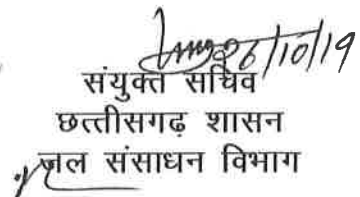 26/10/19
संयुक्त सचिव
छत्तीसगढ़ शासन
जल संसाधन विभाग